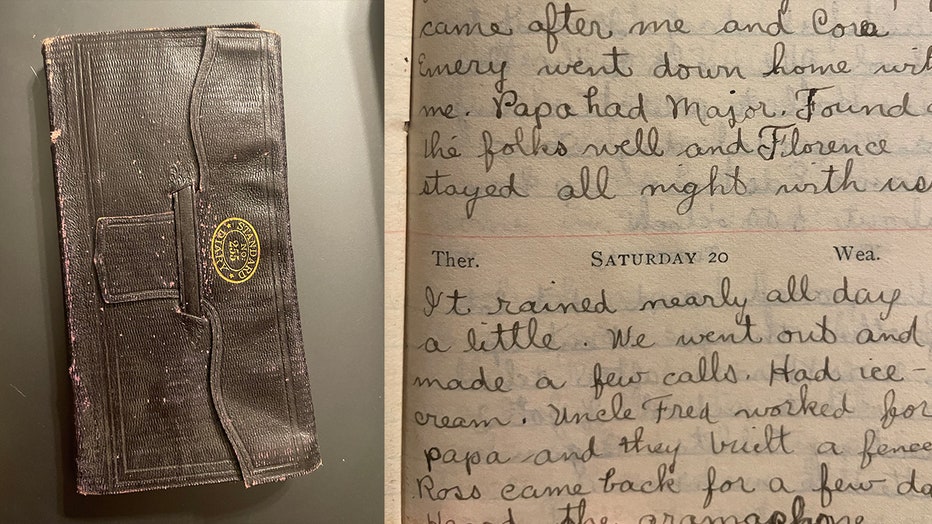 STANDARD
NO.
255
DIARY
came after me and Cora
Emery went down home with
me. Papa had Major. Found
the folks well and Florence
stayed all night with us
Ther. SATURDAY 20 Wea.
It rained nearly all day
a little. We went out and
made a few calls. Had ice-
cream. Uncle Fred worked for
papa and they built a fence
Ross came back for a few da
Heard the gramaphone